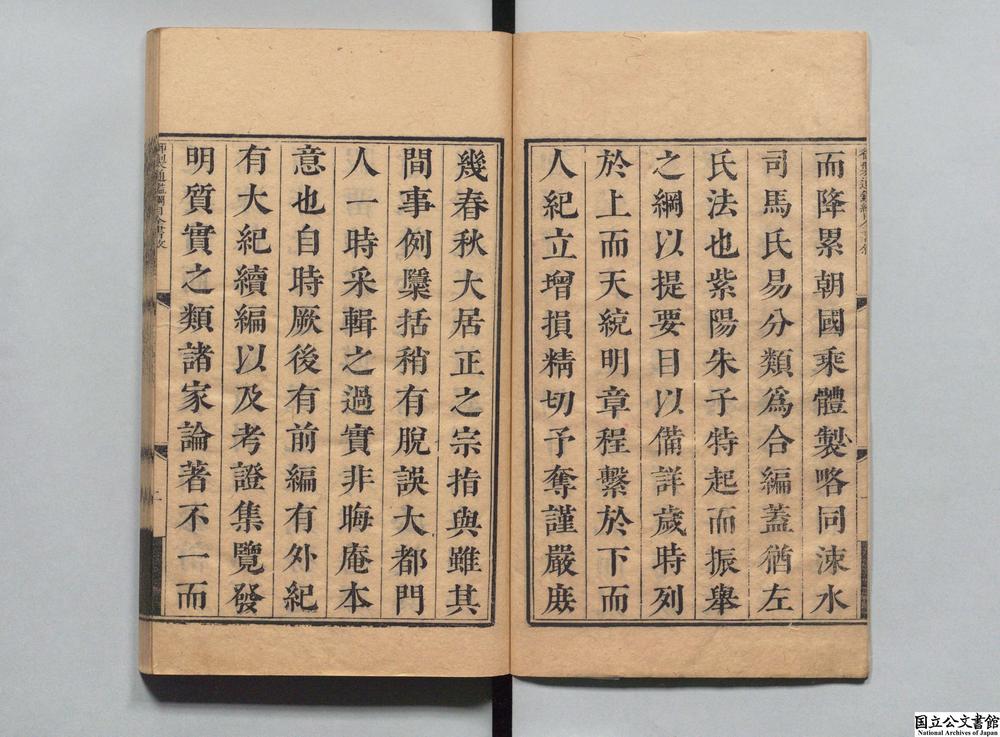 而降累朝國乘體製略同涑水
司馬氏易分類為合編蓋猶左
氏法也紫陽朱子特起而振舉
之綱以提要目以備詳歲時列
於上而天統明章程繫於下而
人紀立增損精切予奪謹嚴庶
幾春秋大居正之宗指與雖其
間事例檃括稍有脫誤大都門
人一時采輯之過實非晦庵本
意也自時厥後有前編有外紀
有大紀續編以及考證集覽發
明質實之類諸家論著不一而
国立公文書館
National Archives of Japan